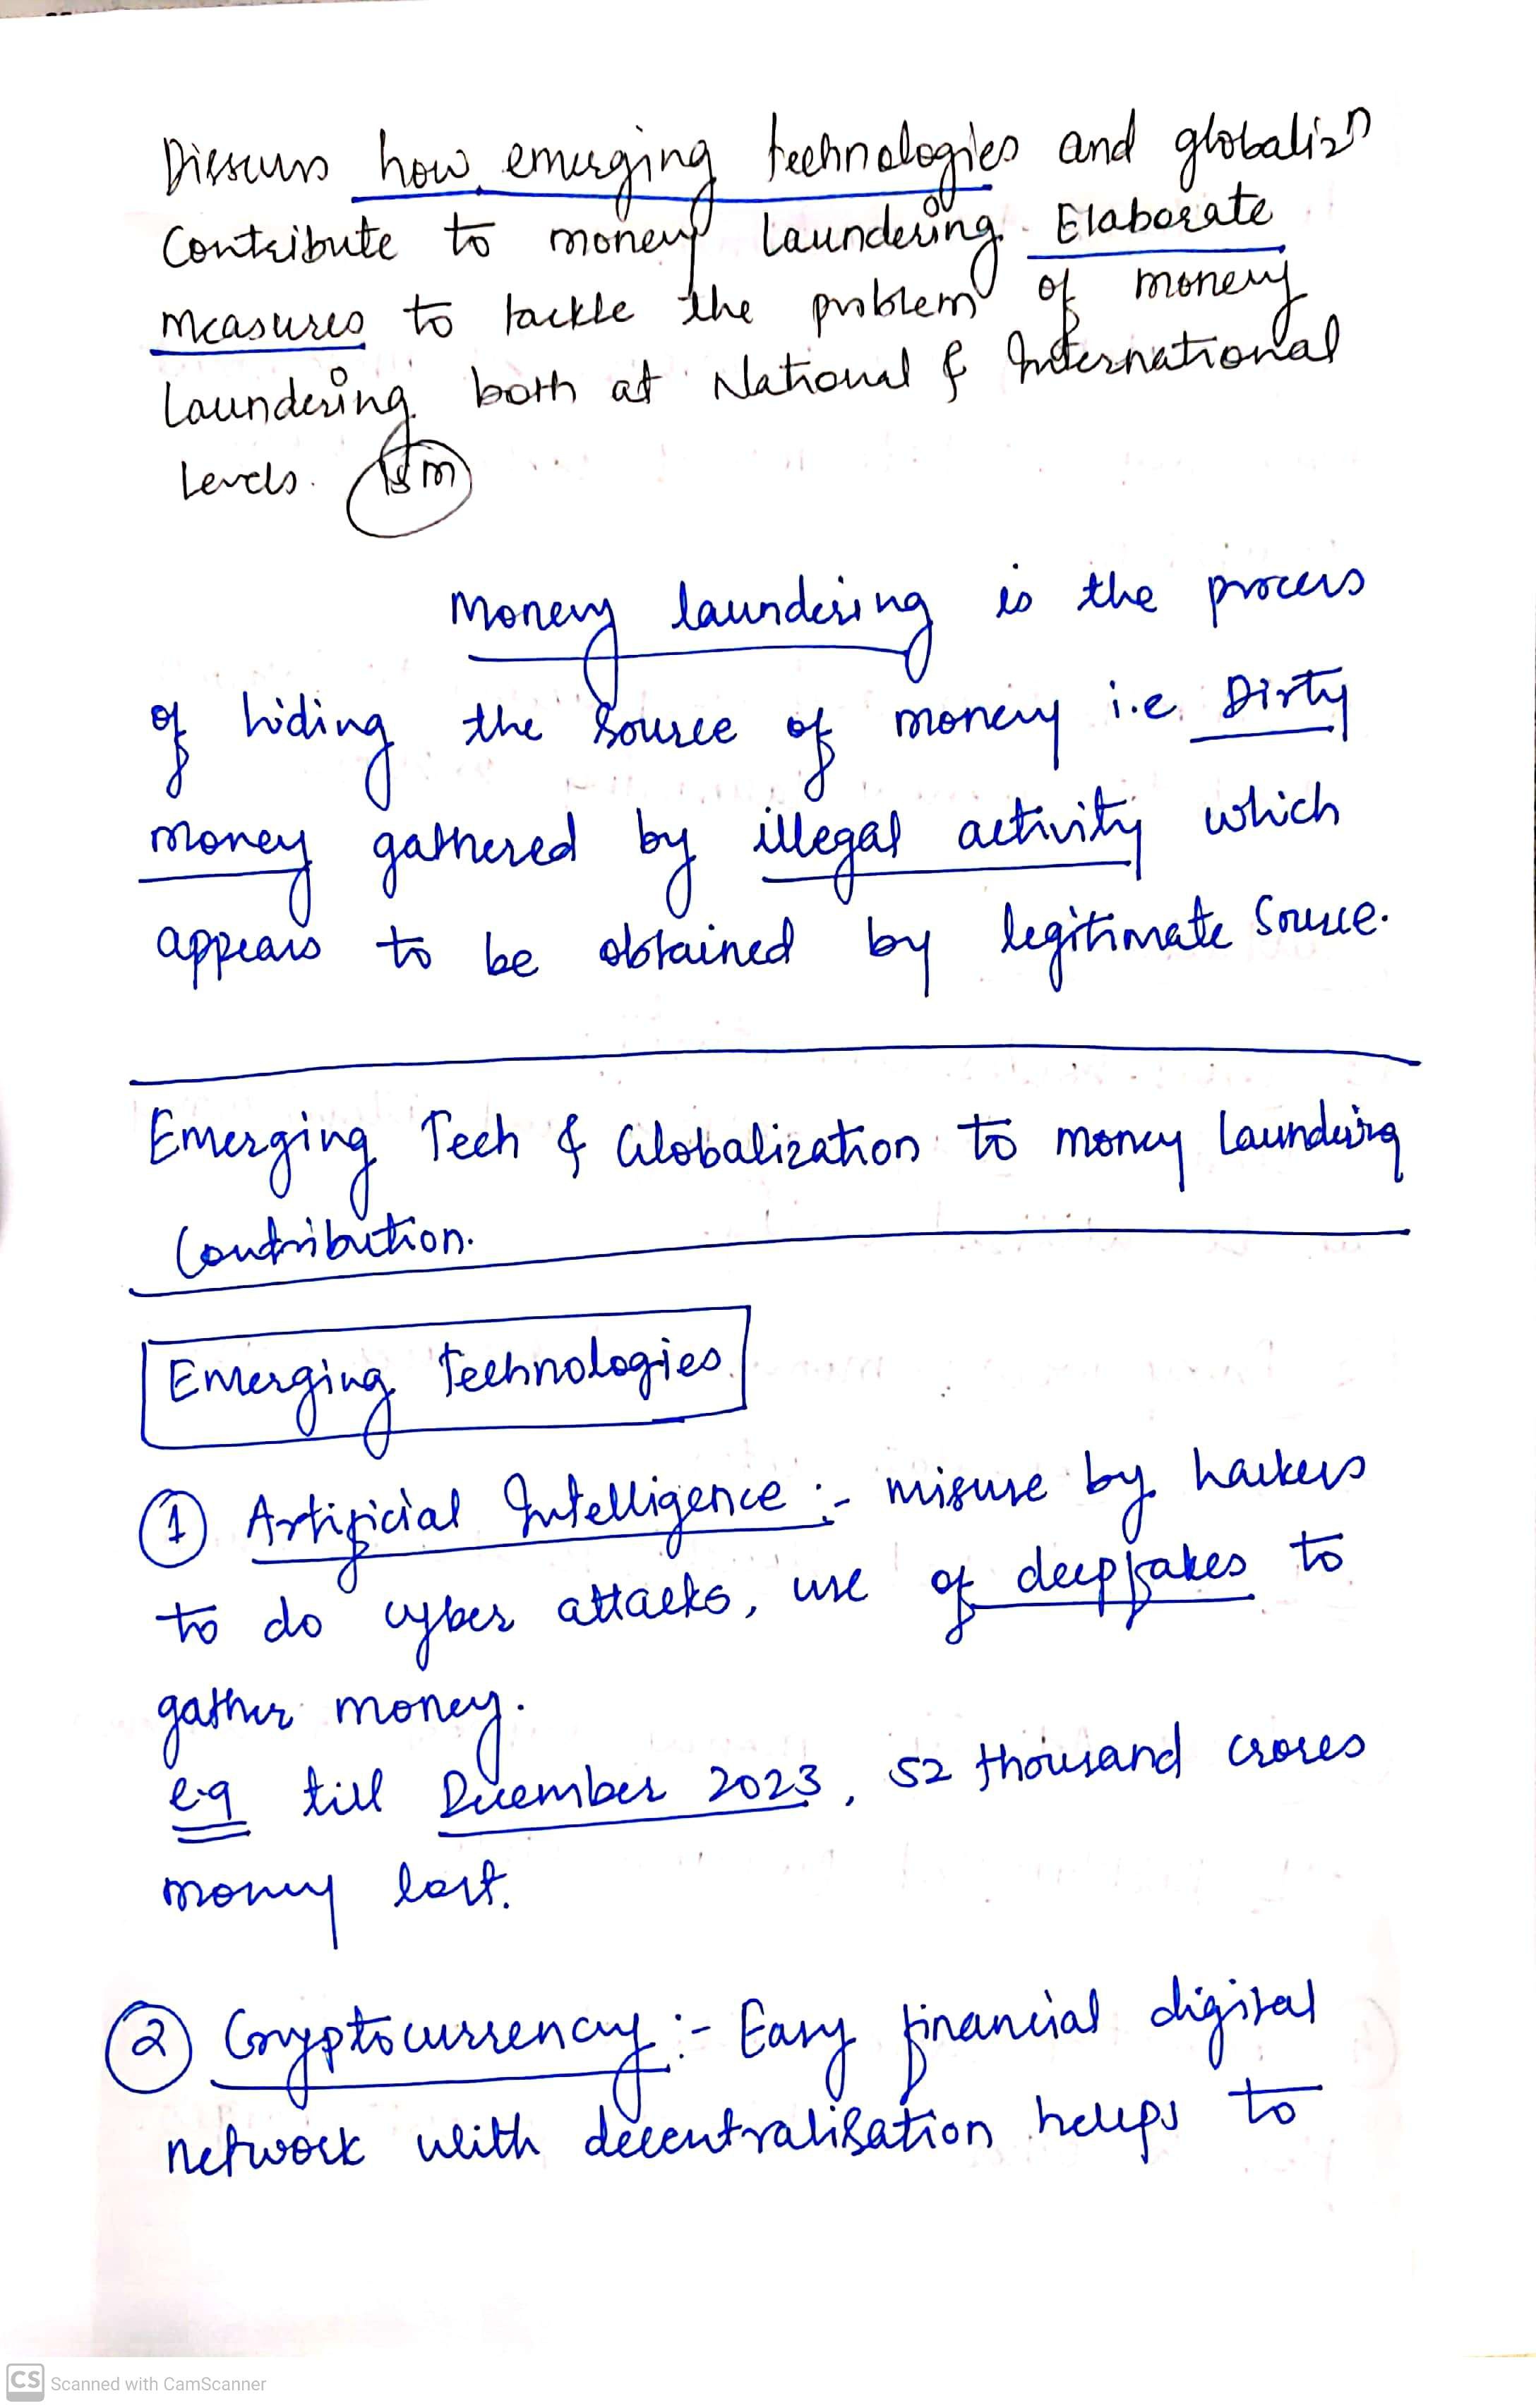 Discuss how emerging technologies and globalizn
Contribute to money laundering. Elaborate
measures to tackle the problem of money
laundering both at National & International
Levels. 15m
Money laundering is the process
of hiding the source of money i.e. Dirty
money gathered by illegal activity which
appears to be obtained by legitimate source.
Emerging Tech & Globalization to money laundering
Contribution.
Emerging Technologies.
① Artificial Intelligence :- misuse by hackers
to do cyber attacks, use of deepfakes to
gather money.
e.g till December 2023, 52 thousand crores
money lost.
② Cryptocurrency :- Easy financial digital
network with decentralisation helps to
CS Scanned with CamScanner